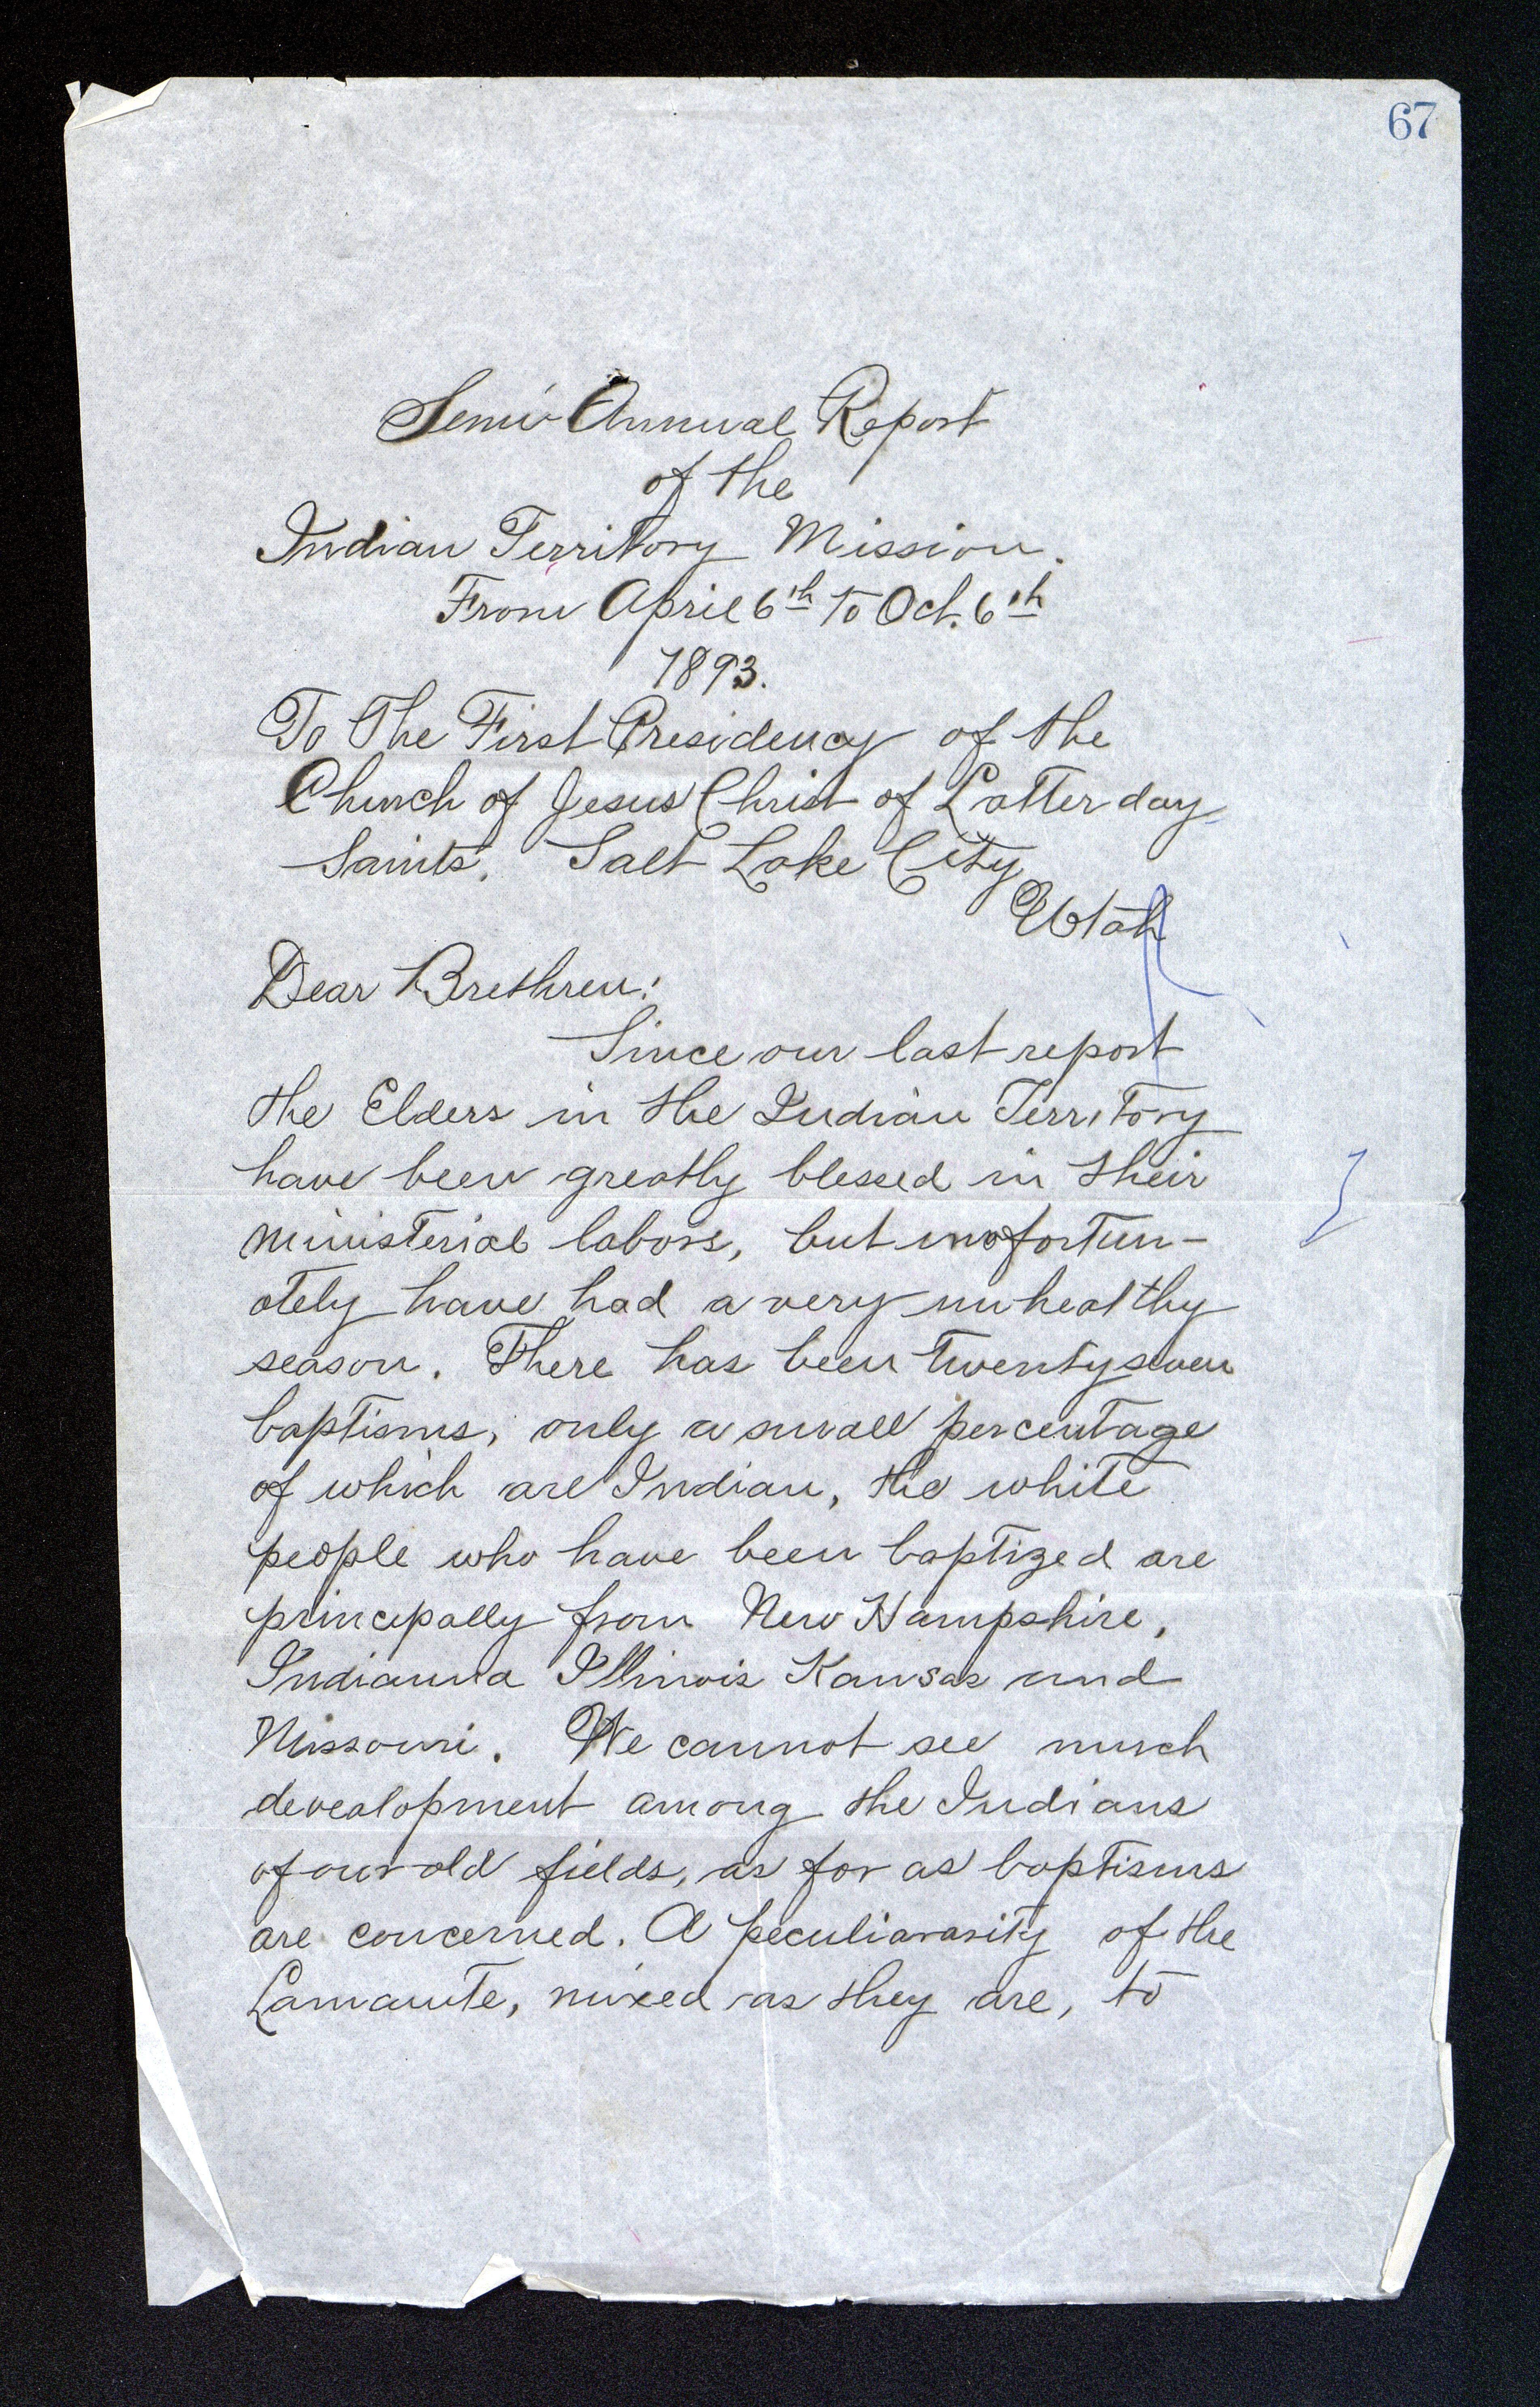 67
Semi-Annual Report
of the
Indian Territory Mission.
From April 6th To Oct. 6th
1893.
To The First Presidency of the
Church of Jesus Christ of Latter day
Saints. Salt Lake City
Utah
Dear Brethren:
Since our last report
the Elders in the Indian Territory
have been greatly blessed in their
ministerial labors, but unofortun-
ately have had a very unhealthy
season. There has been twentyseven
baptisms, only a small percentage
of which are Indian, the white
people who have been baptized are
principally from New Hampshire,
Indianna Illinois Kansas and
Missouri. We cannot see much
devealopment among the Indians
of our old fields, as far as baptisms
are concerned. A peculiararity of the
Lamanite, mixed as they are, to